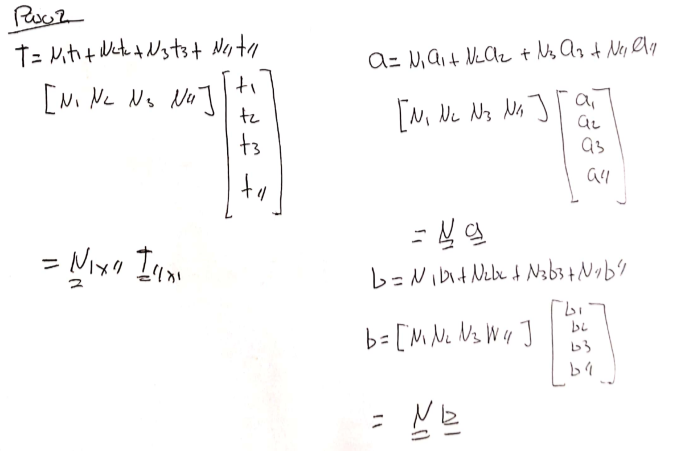 Paso 2
t = N1t1 + N2t2 + N3t3 + N4t4
[N1 N2 N3 N4] [t1
t2
t3
t4]
= N1x4 t4x1
a = N1a1 + N2a2 + N3a3 + N4a4
[N1 N2 N3 N4] [a1
a2
a3
a4]
= N a
b = N1b1 + N2b2 + N3b3 + N4b4
b = [N1 N2 N3 N4] [b1
b2
b3
b4]
= N b